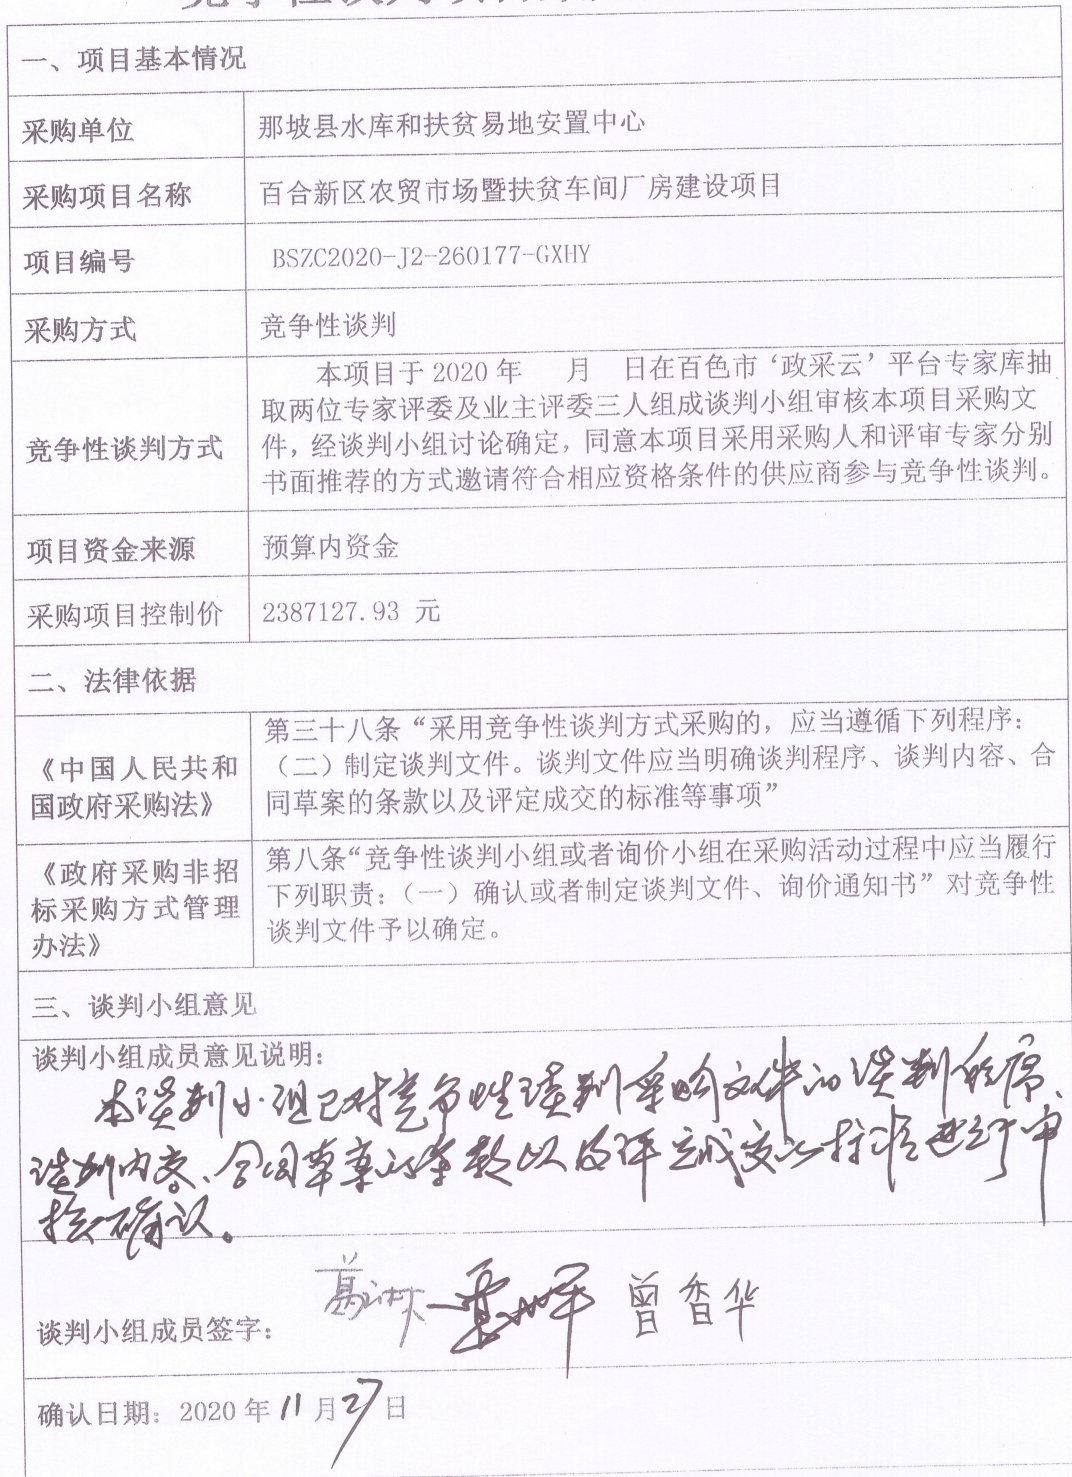 一、项目基本情况
采购单位
那坡县水库和扶贫易地安置中心
采购项目名称
百合新区农贸市场暨扶贫车间厂房建设项目
项目编号
BSZC2020-J2-260177-GXHY
采购方式
竞争性谈判
竞争性谈判方式
本项目于 2020 年 月 日在百色市‘政采云’平台专家库抽
取两位专家评委及业主评委三人组成谈判小组审核本项目采购文
件，经谈判小组讨论确定，同意本项目采用采购人和评审专家分别
书面推荐的方式邀请符合相应资格条件的供应商参与竞争性谈判。
项目资金来源
预算内资金
采购项目控制价
2387127.93 元
二、法律依据
《中国人民共和
国政府采购法》
第三十八条“采用竞争性谈判方式采购的，应当遵循下列程序：
（二）制定谈判文件。谈判文件应当明确谈判程序、谈判内容、合
同草案的条款以及评定成交的标准等事项”
《政府采购非招
标采购方式管理
办法》
第八条“竞争性谈判小组或者询价小组在采购活动过程中应当履行
下列职责：（一）确认或者制定谈判文件、询价通知书”对竞争性
谈判文件予以确定。
三、谈判小组意见
谈判小组成员意见说明：
本谈判小组已对竞争性谈判采购文件的谈判程序、
谈判内容、合同草案的条款以及评定成交的标准进行审
核确认。
谈判小组成员签字：
曾香华
确认日期：2020 年 11 月 27 日